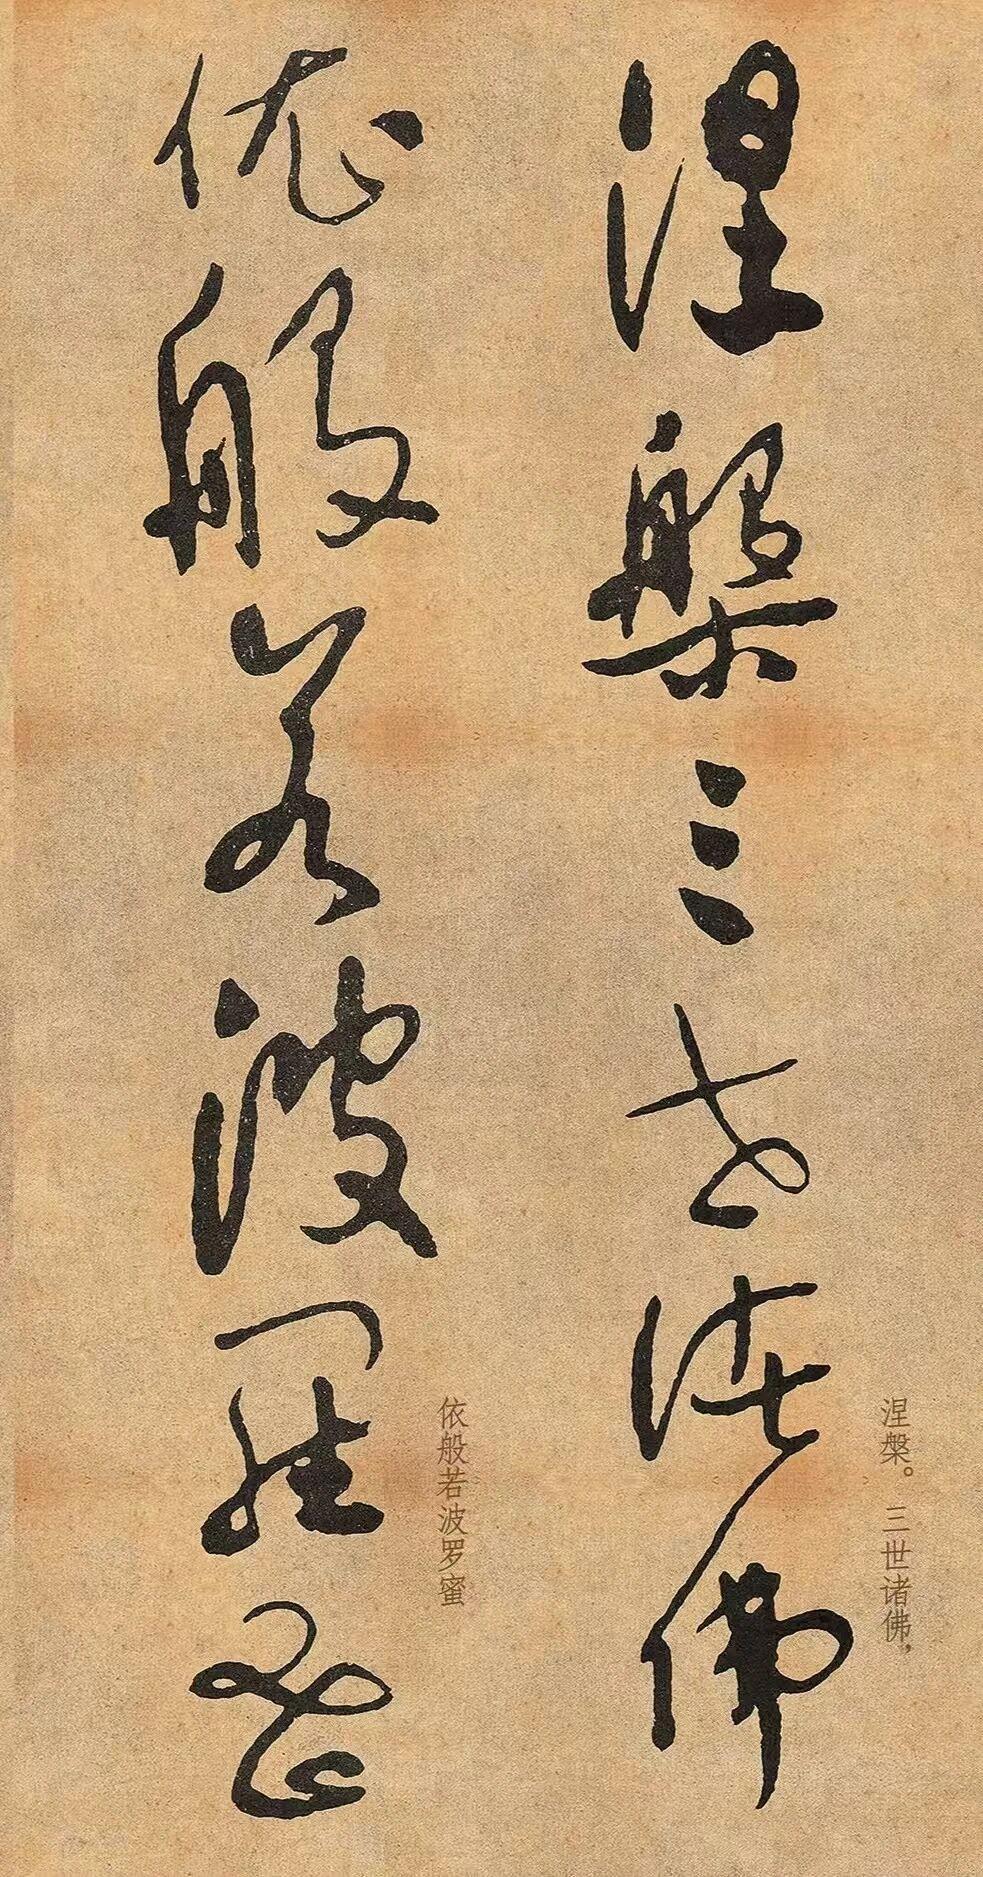 涅槃三世諸佛
涅槃。三世诸佛，
依般若波羅蜜
依般若波罗蜜